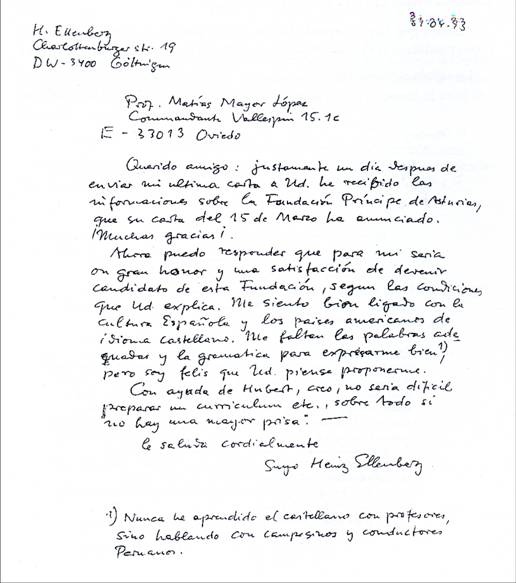 H. Ellenberg
Charlottenburger str. 19
DW-3400 Göttingen
31.04.93
Prof. Matías Mayor López
Commandante Vallespín 15.1c
E - 33013 Oviedo
Querido amigo: justamente un día despues de
enviar mi ultima carta a Ud. he recibido las
informaciones sobre la Fundación Príncipe de Asturias,
que su carta del 15 de Marzo ha anunciado.
¡Muchas gracias!.
Ahora puedo responder que para mi seria
un gran honor y una satisfacción de devenir
candidato de esta Fundación, segun las condiciones
que Ud explica. Me siento bien ligado con la
cultura Española y los paises americanos de
idioma castellano. Me faltan las palabras ade
quadas y la gramatica para expresarme bien¹⁾,
pero soy felis que Ud. piense proponerme.
Con ayuda de Hubert, creo, no seria dificil
preparar un curriculum etc., sobre todo si
no hay una mayor prisa. —
le saluda cordialmente
Suyo Heinz Ellenberg
¹⁾ Nunca he aprendido el castellano con profesores,
sino hablando con campesinos y conductores
Peruanos.